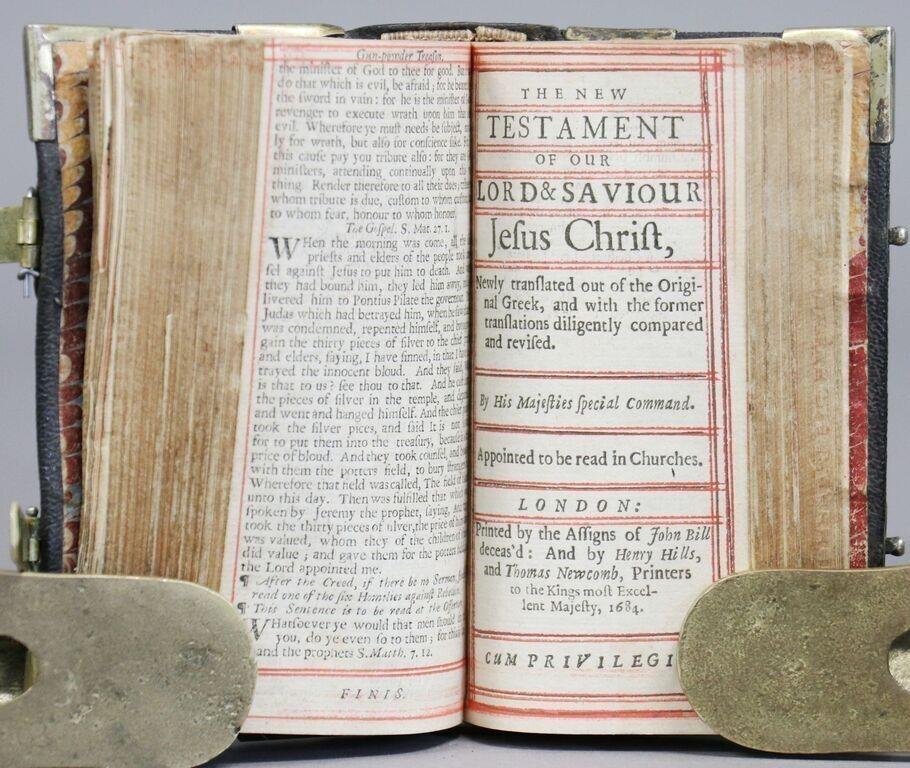 Gun-powder Treason.
the miniſter of God to thee for good. But
do that which is evil, be afraid; for he
the ſword in vain: for he is the miniſter of
revenger to execute wrath upon him that
evil. Wherefore ye muſt needs be ſubject, not
ly for wrath, but alſo for conſcience ſake. For
this cauſe pay you tribute alſo: for they are
miniſters, attending continually upon this
thing. Render therefore to all their dues; tribute
whom tribute is due, cuſtom to whom cuſtom,
to whom fear, honour to whom honour.
The Goſpel. S. Mat. 27. 1.
WHen the morning was come, all the
prieſts and elders of the people took
ſel againſt Jeſus to put him to death. And
they had bound him, they led him away,
livered him to Pontius Pilate the governour.
Judas which had betrayed him, when he ſaw
was condemned, repented himſelf, and
gain the thirty pieces of ſilver to the chief
and elders, ſaying, I have ſinned, in that I
trayed the innocent bloud. And they ſaid,
is that to us? ſee thou to that. And he
the pieces of ſilver in the temple, and
and went and hanged himſelf. And the chief
took the ſilver pices, and ſaid It is not
for to put them into the treaſury, becauſe
price of bloud. And they took counſel, and
with them the potters field, to bury
Wherefore that field was called, The field of
unto this day. Then was fulfilled that which
ſpoken by Jeremy the prophet, ſaying, And
took the thirty pieces of ſilver, the price of
was valued, whom they of the children of
did value; and gave them for the potters
the Lord appointed me.
¶ After the Creed, if there be no Sermon,
read one of the ſix Homilies againſt Rebellion.
¶ This Sentence is to be read at the Offertory.
WHatſoever ye would that men ſhould do
you, do ye even ſo to them; for this is
and the prophets S. Matth. 7. 12.
FINIS.
THE NEW
TESTAMENT
OF OUR
LORD & SAVIOUR
Jeſus Chriſt,
Newly tranſlated out of the Origi-
nal Greek, and with the former
tranſlations diligently compared
and reviſed.
By His Majeſties ſpecial Command.
Appointed to be read in Churches.
LONDON:
Printed by the Aſſigns of John Bill
deceas'd: And by Henry Hills,
and Thomas Newcomb, Printers
to the Kings moſt Excel-
lent Majeſty, 1684.
CUM PRIVILEGI